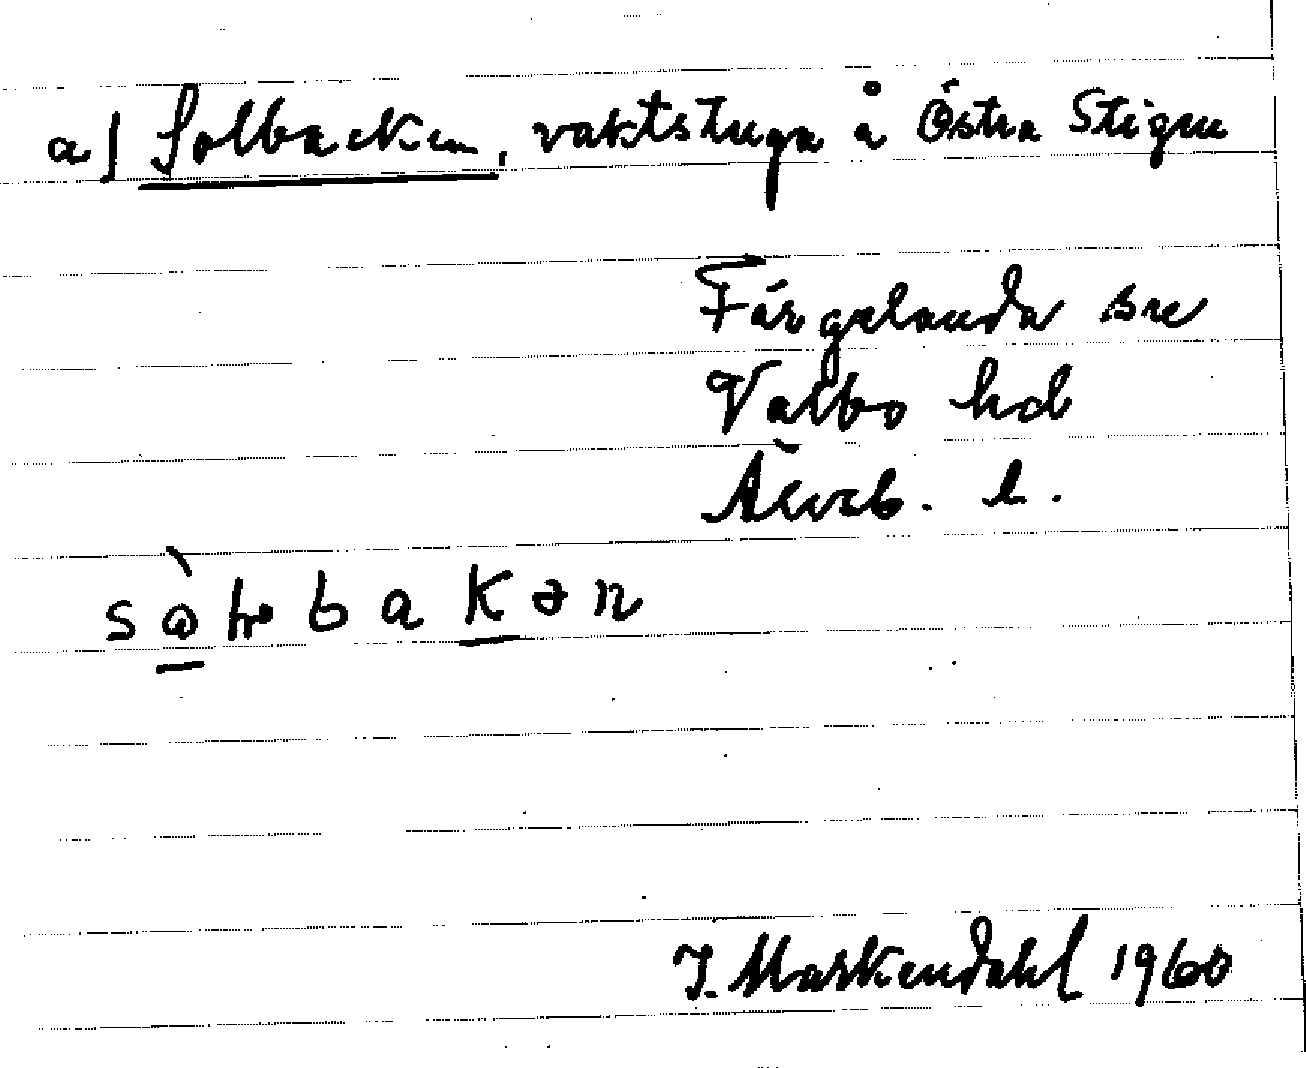 a) Solbacken, vaktstuga å Östra Stigen
Färgelanda sn
Valbo hd
Älvsb. l.
J. Markendahl 1960